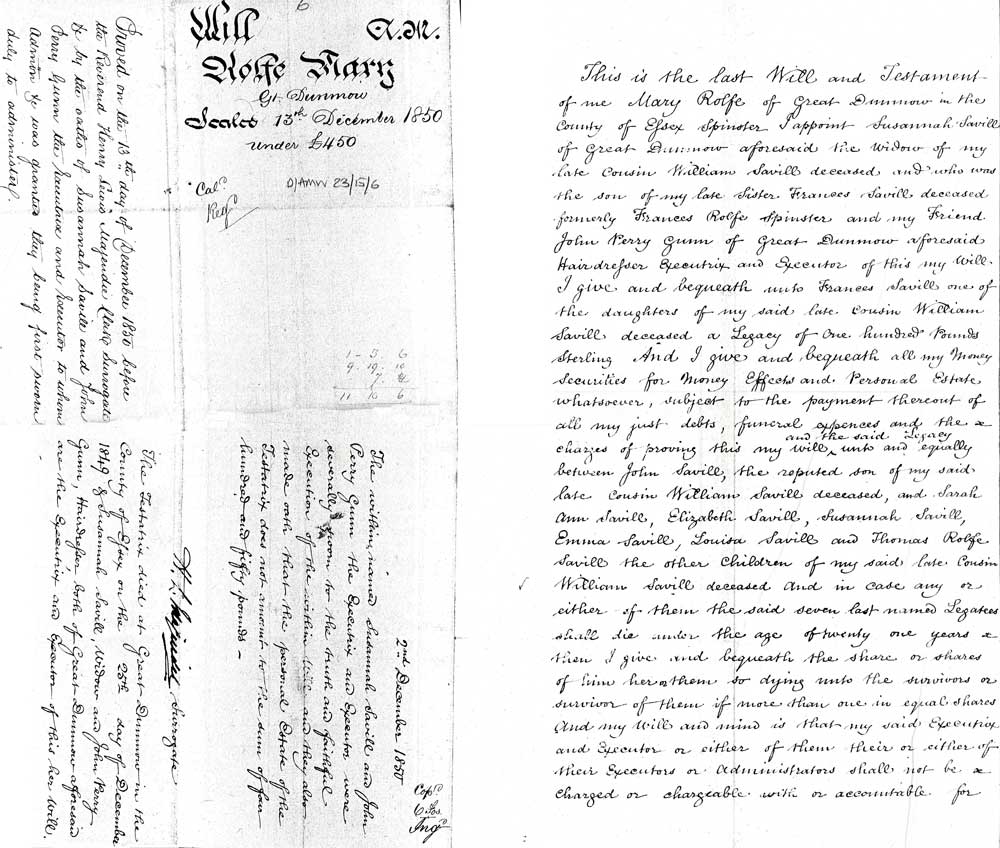 6
Will A.M.
Rolfe Mary
Gt. Dunmow
Sealed 13th December 1850
under £450
D/AMW 23/15/6
Calᵈ
Regᵈ
1 - 3 6
9 . 19 . 10
7 .
11 10 6
Proved on the 13th day of December 1850 before
the Reverend Henry Lewis Majendie Clerk Surrogate
&c by the oaths of Susannah Savill and John
Perry Gunn the Executrix and Executor to whom
Admon &c was granted they being first sworn
duly to administer.
2nd December 1850
The within named Susannah Savill and John
Perry Gunn the Executrix and Executor were
severally sworn to the truth and faithful
Execution of the within Will and they also
made oath that the personal Estate of the
Testatrix does not amount to the sum of four
hundred and fifty pounds -
Surrogate
The Testatrix died at Great Dunmow in the
County of Essex on the 25th day of December
1849 & Susannah Savill Widow and John Perry
Gunn, Hairdresser both of Great Dunmow aforesaid
are the Executrix and Executor of this her Will.
This is the last Will and Testament
of me Mary Rolfe of Great Dunmow in the
County of Essex Spinster I appoint Susannah Savill
of Great Dunmow aforesaid the widow of my
late cousin William Savill deceased and who was
the son of my late Sister Frances Savill deceased
formerly Frances Rolfe Spinster and my Friend
John Perry Gunn of Great Dunmow aforesaid
Hairdresser Executrix and Executor of this my Will.
I give and bequeath unto Frances Savill one of
the daughters of my said late cousin William
Savill deceased a Legacy of One hundred Pounds
Sterling And I give and bequeath all my Money
Securities for Money Effects and Personal Estate
whatsoever, subject to the payment thereout of
all my just debts, funeral expences and the x
and the said Legacy
charges of proving this my will, unto and equally
between John Savill, the reputed son of my said
late cousin William Savill deceased, and Sarah
Ann Savill, Elizabeth Savill, Susannah Savill,
Emma Savill, Louisa Savill and Thomas Rolfe
Savill the other Children of my said late Cousin
William Savill deceased And in case any or
either of them the said seven last named Legatees
shall die under the age of twenty one years x
then I give and bequeath the share or shares
of him her or them so dying unto the survivors or
survivor of them if more than one in equal shares
And my Will and mind is that my said Executrix
and Executor or either of them their or either of
their Executors or Administrators shall not be x
charged or chargeable with or accountable for